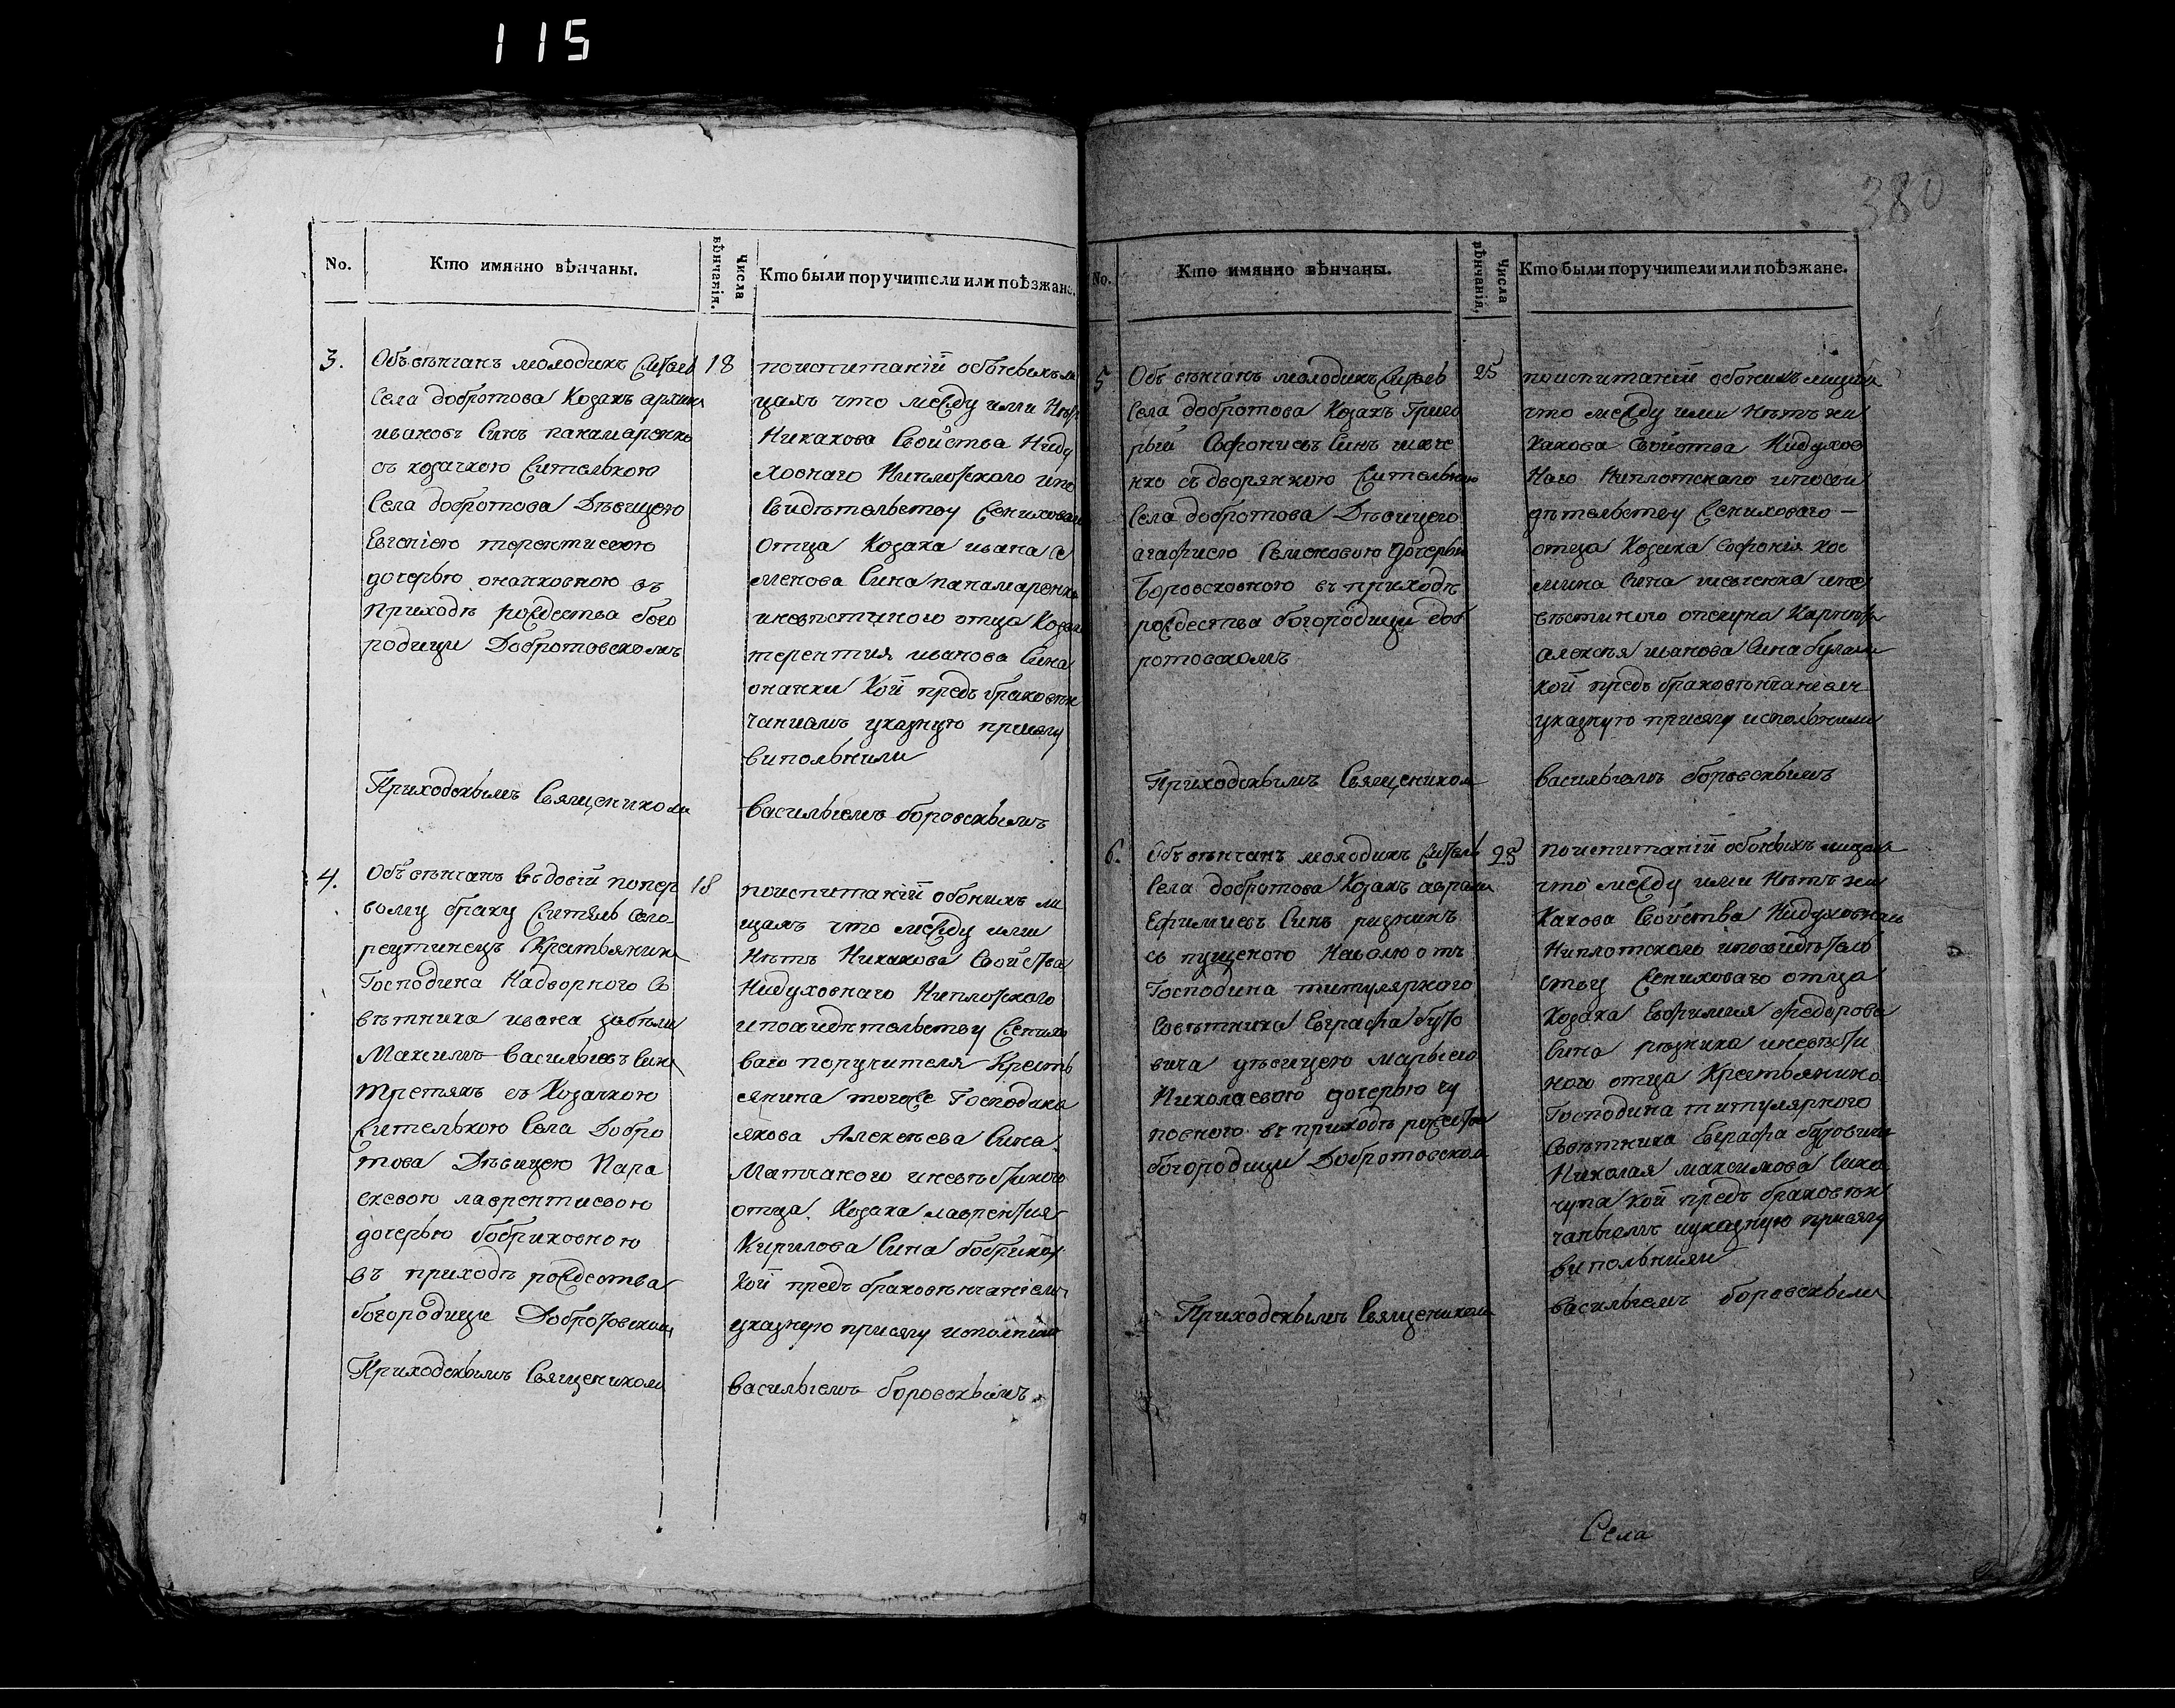 115
380
No.
Кто имянно вѣнчаны.
Числа вѣнчанія.
Кто были поручители или поѣзжане.
3.
Объвѣнчанъ молодикъ житель
села добротова Козакъ архипъ
ивановъ Синъ панамаренко
съ козачкою жителькою
села добротова Дѣвицею
Евгенiею терентиевою
дочерью оначковною въ
приходѣ рождества бого
родици Добротовскомъ
Приходскьимъ Священикомъ
18
поиспитанiй обоихъ ли
цахъ что между ими Нѣтъ
Никакова Свойства Ниду
ховнаго Ниплотского ипо
Свидѣтельству жениховаго
отца Козака ивана се
менова Сина панамаренка
иневѣстиного отца Козака
терентия иванова Сина
оначки Кой предъ браковѣн
чаниамъ указную присягу
виполънили
Васильемъ боровскьимъ
4.
Объвѣнчанъ вьдовiй попер
вому браку житель село
реутинецъ Крестьянинъ
Господина Надворного Со
вѣтника ивана забѣли
Максимъ Васильевъ Синъ
третякъ съ Козачкою
жителькою Села Добро
това Дѣвицею Пара
скевою лаврентиевою
дочерью бобриковною
въ приходѣ рождества
богородици Добротовскомъ
Приходскьимъ Священикомъ
18
поиспитанiй обоихъ ли
цахъ что между ими
Нѣтъ Никакова Свойства
Нидуховнаго Ниплотского
ипосвидѣтельству женихо
ваго поручителя Кресть
янина тогоже Господина
якова Алексѣева Сина
Матчаного иневѣстиного
отца Козака лаврентия
Кирилова Сина бобрика
Кой предъ браковѣнчанiемъ
указную присягу исполнили
Васильемъ боровскьимъ
No.
Кто имянно вѣнчаны.
Числа вѣнчанія.
Кто были поручители или поѣзжане.
5
Объвѣнчанъ молодикъ житель
села добротова Козакъ Григо
рьй Софониевъ Синъ шевче
нко съ дворянкою жителькою
села добротова Дѣвицею
агафиею Семеновою дочерью
Боровсковною въ приходѣ
рождества богородици доб
ротовскомъ
Приходскьимъ Священикомъ
25
поиспитанiй обоихъ лицахъ
что между ими Нѣтъ ни
Какова Свойства Нидухов
Наго Ниплотскаго ипосви
дѣтельству жениховаго —
отца Козака Софонiя кос
мина Сина шевченка ине
вѣстиного опекуна
алексѣя иванова Сина
кой предъ браковѣнчанiемъ
указную присягу исполънили
Васильемъ боровскьимъ
6.
Объвѣнчанъ молодикъ житель
села добротова Козакъ аврамъ
Ефимиевъ Синъ
съ пущеною Наволю отъ
Господина титулярного
Совѣтника Евграфа
вича дѣвицею марьею
Николаевою дочерью чу
повною въ приходѣ рождества
богородици Добротовскомъ
Приходскьимъ Священикомъ
25
поиспитанiй обоихъ лицахъ
что между ими Нѣтъ ни
Какова Свойства Нидуховнаго
Ниплотского ипосвидѣтель
ству жениховаго отца
Козака Ефимия федорова
Сина рѣзника иневѣсти
ного отца Крестьянина
Господина титулярного
Совѣтника Евграфа
Николая максимова Сина
чупа кой предъ браковѣн
чаньемъ указную присягу
виполънили
Васильемъ боровскьимъ
Села